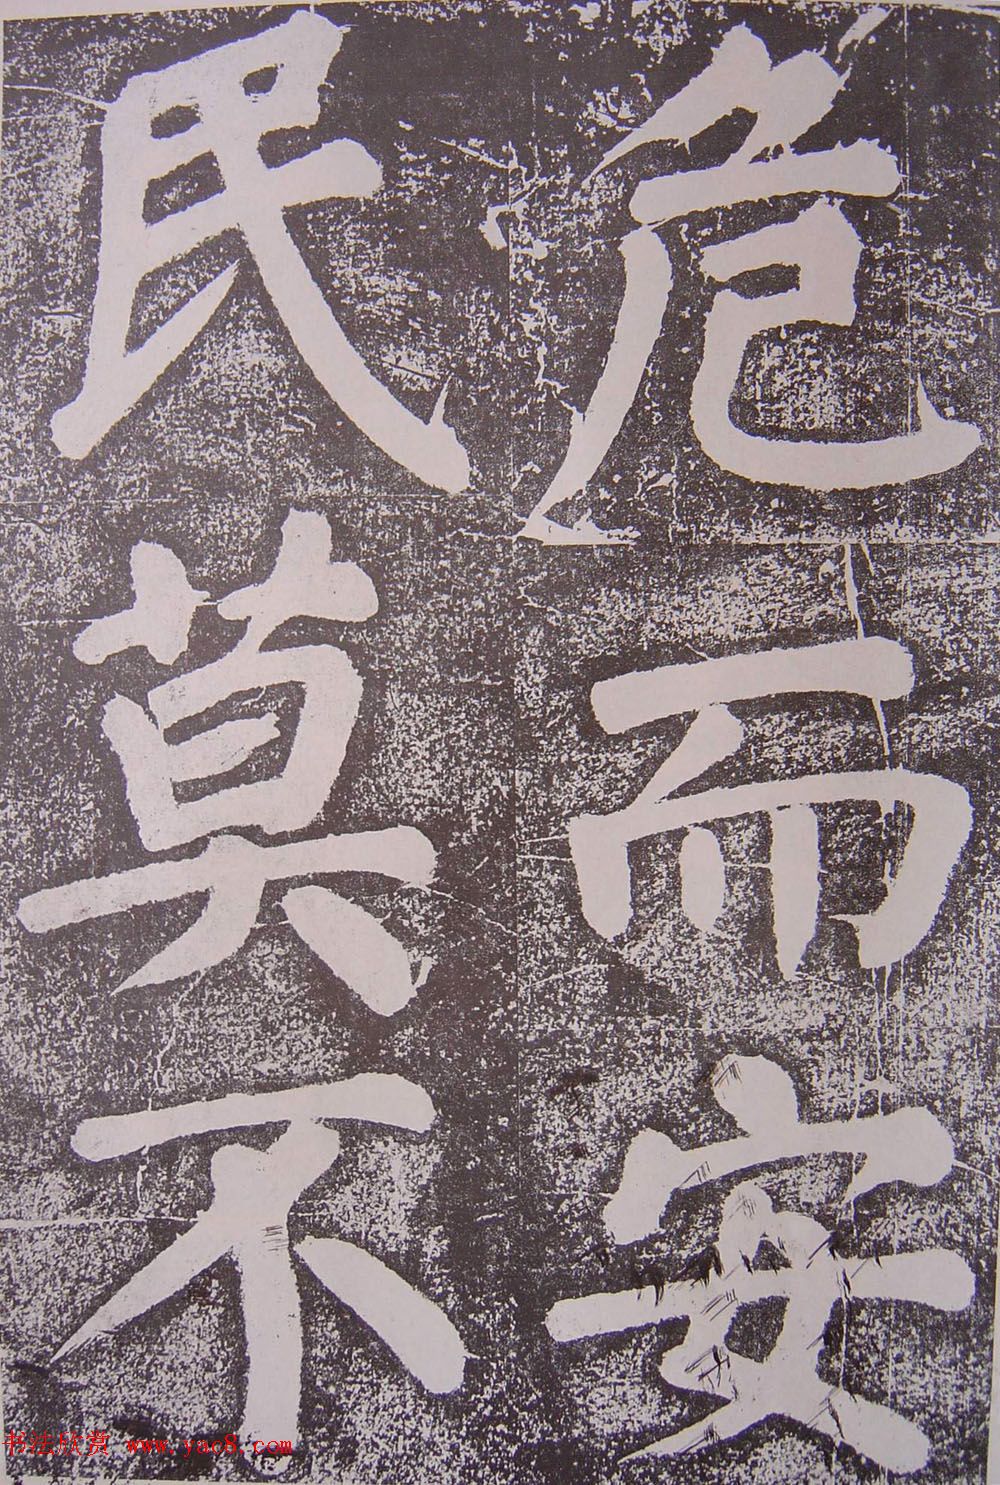 危而安
民莫不
书法欣赏 www.yac8.com